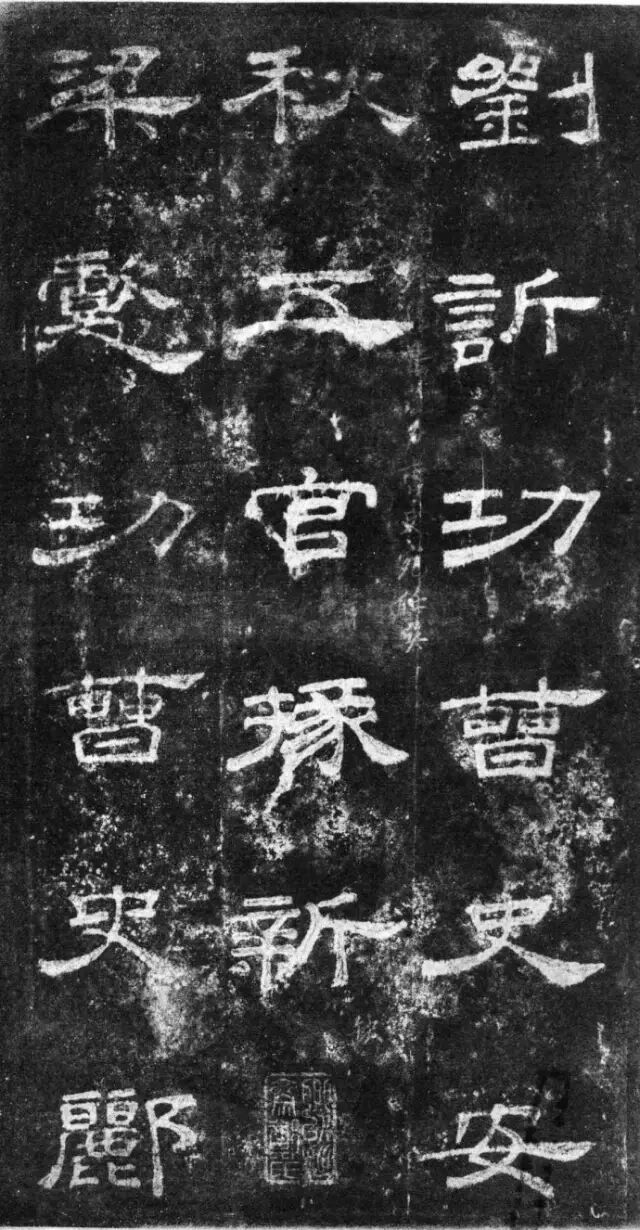 劉訢功曹史安
秋五官掾新
梁㝛功曹史酈